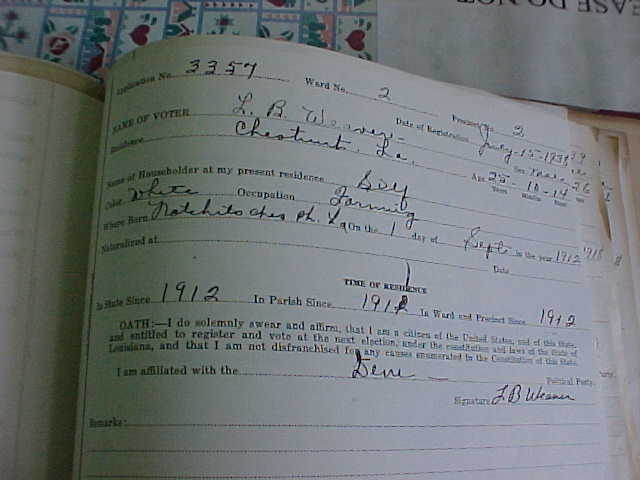 EASE DO NOT
Application No. 3357 Ward No. 2 Precinct No. 2
NAME OF VOTER L. B. Weaver Date of Registration July-15-1938
Residence Chestnut, La. Sex Male
Name of Householder at my present residence Self Age 25-10-14
Years Months Days
Color White Occupation Farming
Where Born Natchitoches Ph. La On the 1 day of Sept in the year 1912
Naturalized at Date
TIME OF RESIDENCE
In State Since 1912 In Parish Since 1912 In Ward and Precinct Since 1912
OATH:—I do solemnly swear and affirm, that I am a citizen of the United States, and of this State,
and entitled to register and vote at the next election, under the constitution and laws of the State of
Louisiana, and that I am not disfranchised for any causes enumerated in the Constitution of this State.
I am affiliated with the Dem Political Party.
Signature L B Weaver
Remarks: